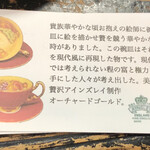 貴族華やかな頃お抱えの絵師に
皿に絵を描かせ贅を競う華やかな
時がありました。この碗皿はそれ
を現代風に再現した物です。現代
では考えられない程の富と権力
手にした人々が考え出した。美
贅沢アインズレイ制作
オーチャードゴールド。